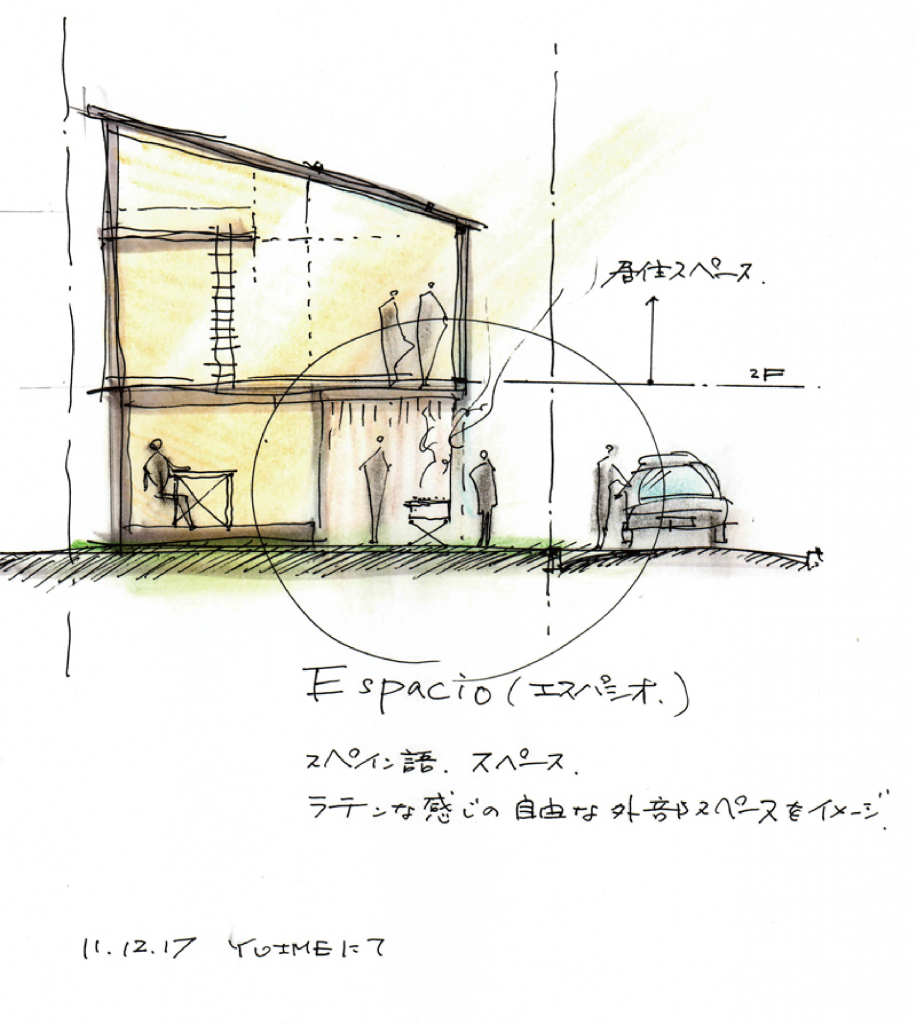 居住スペース.
2F
Espacio (エスパシオ.)
スペイン語. スペース.
ラテンな感じの自由な外部スペースをイメージ.
11.12.17 YUIMEにて